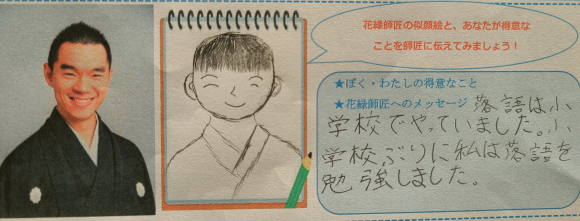 花緑師匠の似顔絵と、あなたが得意な
ことを師匠に伝えてみましょう！
★ぼく・わたしの得意なこと
★花緑師匠へのメッセージ 落語は小
学校でやっていました。小
学校ぶりに私は落語を
勉強しました。